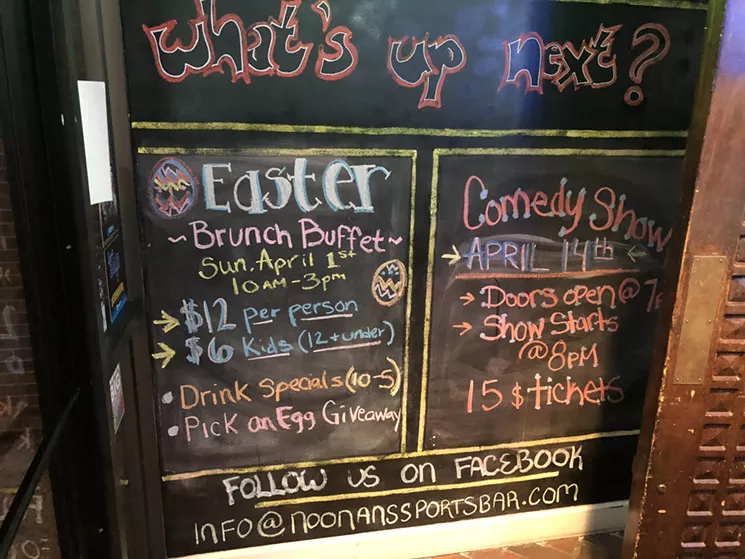 What's up next?
Easter
~Brunch Buffet~
Sun, April 1st
10AM-3pm
→ $12 per person
→ $6 Kids (12 + under)
• Drink Specials (10-5)
• Pick an Egg Giveaway
Comedy Show
→ APRIL 14th ←
→ Doors open @ 7
→ Show Starts
@ 8pm
15 $ tickets
FOLLOW US ON FACEBOOK
INFO@NOONANSSPORTSBAR.COM